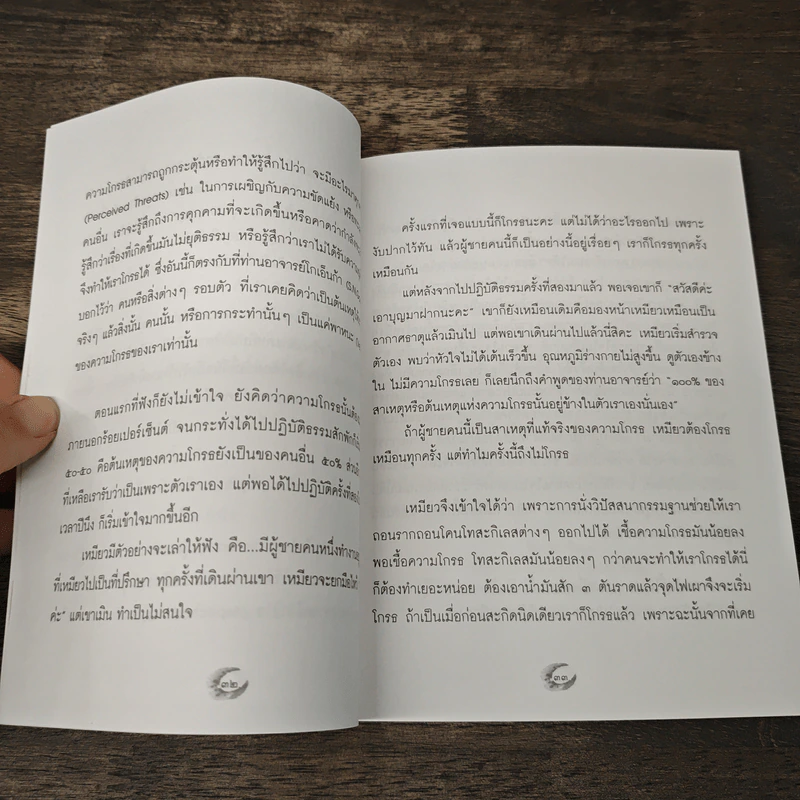 ความโกรธสามารถถูกกระตุ้นหรือทำให้รู้สึกไปว่า จะมีอะไรมา
(Perceived Threats) เช่น ในการเผชิญกับความขัดแย้ง
คนอื่น เราจะรู้สึกถึงการคุกคามที่จะเกิดขึ้นหรือคาดว่ากำลัง
รู้สึกว่าเรื่องที่เกิดขึ้นมันไม่ยุติธรรม หรือรู้สึกว่าเราไม่ได้รับความ
จึงทำให้เราโกรธได้ ซึ่งอันนี้ก็ตรงกับที่ท่านอาจารย์โกเอ็นก้า
บอกไว้ว่า คนหรือสิ่งต่างๆ รอบตัว ที่เราเคยคิดว่าเป็นต้นเหตุ
จริงๆ แล้วสิ่งนั้น คนนั้น หรือการกระทำนั้นๆ เป็นแค่พาหนะ
ของความโกรธของเราเท่านั้น
ตอนแรกที่ฟังก็ยังไม่เข้าใจ ยังคิดว่าความโกรธนั้น
ภายนอกร้อยเปอร์เซ็นต์ จนกระทั่งได้ไปปฏิบัติธรรมสักพัก
๕๐-๕๐ คือต้นเหตุของความโกรธยังเป็นของคนอื่น ๕๐% ส่วน
ที่เหลือเรารับว่าเป็นเพราะตัวเราเอง แต่พอได้ไปปฏิบัติครั้งที่
เวลาปีนึง ก็เริ่มเข้าใจมากขึ้นอีก
เหมียวมีตัวอย่างจะเล่าให้ฟัง คือ...มีผู้ชายคนหนึ่งทำงาน
ที่เหมียวไปเป็นที่ปรึกษา ทุกครั้งที่เดินผ่านเขา เหมียวจะยกมือไหว้
ค่ะ" แต่เขาเมิน ทำเป็นไม่สนใจ
๓๒
ครั้งแรกที่เจอแบบนี้ก็โกรธนะคะ แต่ไม่ได้ว่าอะไรออกไป เพราะ
งับปากไว้ทัน แล้วผู้ชายคนนี้ก็เป็นอย่างนี้อยู่เรื่อยๆ เราก็โกรธทุกครั้ง
เหมือนกัน
แต่หลังจากไปปฏิบัติธรรมครั้งที่สองมาแล้ว พอเจอเขาก็ "สวัสดีค่ะ
เอาบุญมาฝากนะคะ" เขาก็ยังเหมือนเดิมคือมองหน้าเหมียวเหมือนเป็น
อากาศธาตุแล้วเมินไป แต่พอเขาเดินผ่านไปแล้วนี่สิคะ เหมียวเริ่มสำรวจ
ตัวเอง พบว่าหัวใจไม่ได้เต้นเร็วขึ้น อุณหภูมิร่างกายไม่สูงขึ้น ดูตัวเองข้าง
ใน ไม่มีความโกรธเลย ก็เลยนึกถึงคำพูดของท่านอาจารย์ว่า "๑๐๐% ของ
สาเหตุหรือต้นเหตุแห่งความโกรธนั้นอยู่ข้างในตัวเราเองนั่นเอง"
ถ้าผู้ชายคนนี้เป็นสาเหตุที่แท้จริงของความโกรธ เหมียวต้องโกรธ
เหมือนทุกครั้ง แต่ทำไมครั้งนี้ถึงไม่โกรธ
เหมียวจึงเข้าใจได้ว่า เพราะการนั่งวิปัสสนากรรมฐานช่วยให้เรา
ถอนรากถอนโคนโทสะกิเลสต่างๆ ออกไปได้ เชื้อความโกรธมันน้อยลง
พอเชื้อความโกรธ โทสะกิเลสมันน้อยลงๆ กว่าคนจะทำให้เราโกรธได้นี่
ก็ต้องทำเยอะหน่อย ต้องเอาน้ำมันสัก ๓ ตันราดแล้วจุดไฟเผาจึงจะเริ่ม
โกรธ ถ้าเป็นเมื่อก่อนสะกิดนิดเดียวเราก็โกรธแล้ว เพราะฉะนั้นจากที่เคย
๓๓